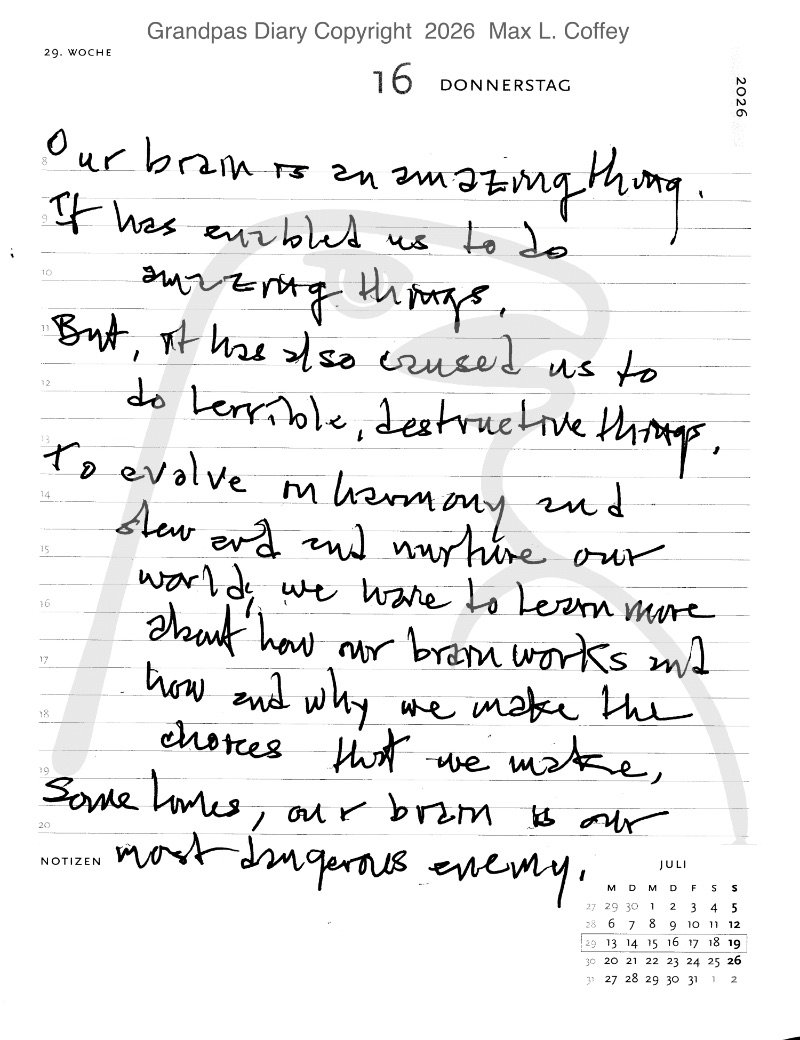 Grandpas Diary Copyright 2026 Max L. Coffey
29. WOCHE
16 DONNERSTAG
2026
Our brain is an amazing thing.
It has enabled us to do
amazing things.
But, it has also caused us to
do terrible, destructive things.
To evolve in harmony and
and nurture our
world, we have to learn more
about how our brain works and
how and why we make the
choices that we make,
Some times, our brain is our
most dangerous enemy.
8
9
10
11
12
13
14
15
16
17
18
19
20
NOTIZEN
JULI
M D M D F S S
27 29 30 1 2 3 4 5
28 6 7 8 9 10 11 12
29 13 14 15 16 17 18 19
30 20 21 22 23 24 25 26
31 27 28 29 30 31 1 2